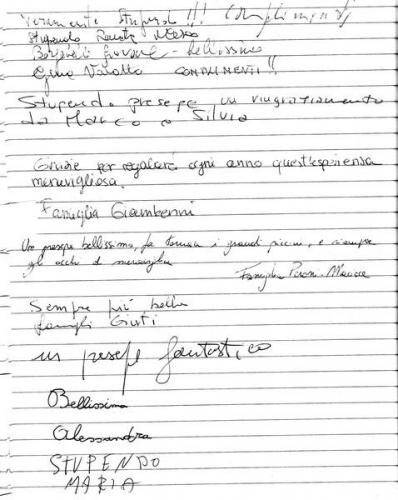 veramente stupendo!!! Complimenti
Stupendo
bellissimo
Gino COMPLIMENTI!!
Stupendo presepe un ringraziamento
da Marco e Silvia
Grazie per regalarci ogni anno quest'esperienza
meravigliosa.
Famiglia Giambenni
Un presepe bellissimo, fa tornare i grandi piccini, e riempie
gli occhi di meraviglia
Famiglia
Sempre più bello
famiglia Giusti
un presepe fantastico
Bellissimo
Alessandra
STUPENDO
MARIA